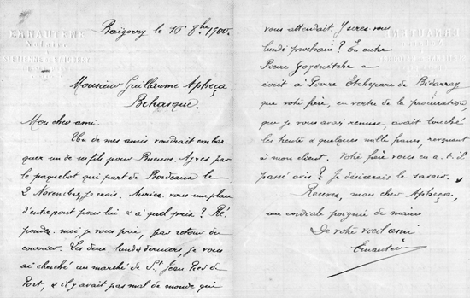 Baïgorry le 16 8bre 1900
Monsieur Guillaume Apheça
Béhasque
Mon cher ami.
Un de mes amis voudrait embar
quer un de ses fils pour Buenos Ayres par
le paquebot qui part de Bordeaux le
2 Novembre, je crois. Auriez vous une place
d'entrepont pour lui et à quel prix ? Ré
pondez moi je vous prie, par retour du
courrier. Les deux lundis derniers, je vous
ai cherché au marché de St Jean Pied de
Port, et il y avait pas mal de monde qui
vous attendait. Y irez-vous
lundi prochain ? En outre
Pierre
écrit à Pierre Etchepare de Bidarray
que votre frère, en vertu de la procuration
que je vous avais remise, avait touché
les trente et quelques mille francs, revenant
à mon client. Votre frère vous en a-t-il
passé avis ? Je désirerais le savoir.
Recevez, mon cher Apheça,
une cordiale poignée de mains
De votre tout ami